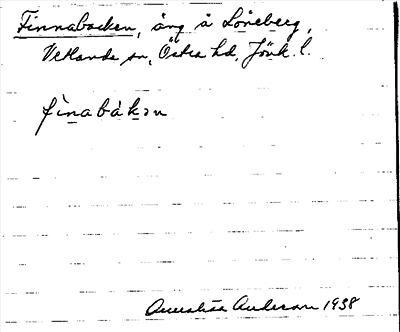 Finnabacken, äng å Löneberg,
Vetlanda sn, Östra hd, Jönk. l.
fìnabákən
Annalisa Anderson 1938